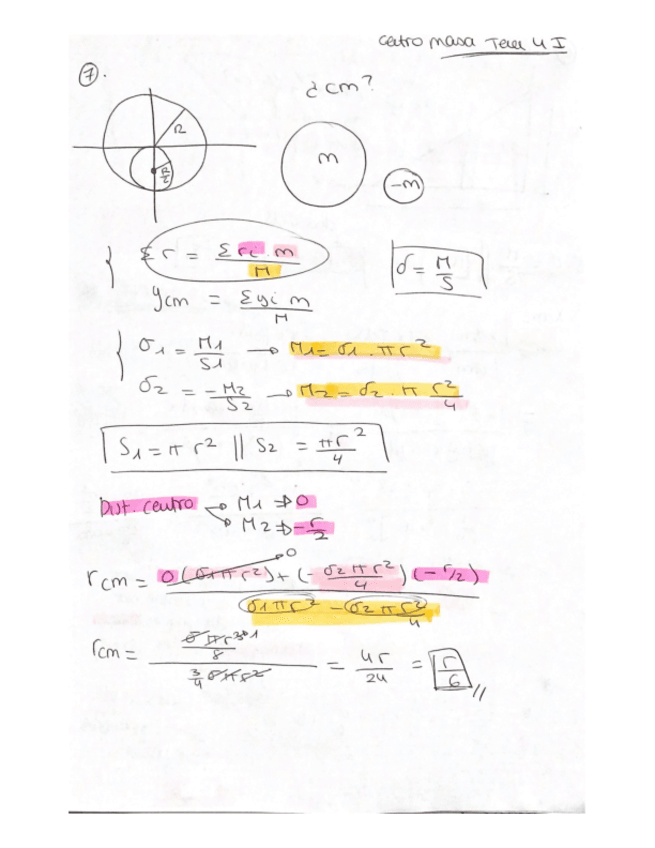 centro masa Tema 4 I
7.
¿cm?
R
R/2
m
-m
Σr = Σ ri · m / M
σ = M/S
ycm = Σyi m / M
σ1 = M1/S1 → M1 = σ1 · πr²
σ2 = -M2/S2 → M2 = σ2 · π r²/4
S1 = π r² || S2 = πr²/4
Dist. centro → M1 ⇒ 0
→ M2 ⇒ -r/2
0
rcm = 0(σ1πr²) + (-σ2πr²/4)(-r/2) / σ1πr² - σ2πr²/4
rcm = σπr³/8 / 3/4 σπr² = 4r/24 = r/6 //